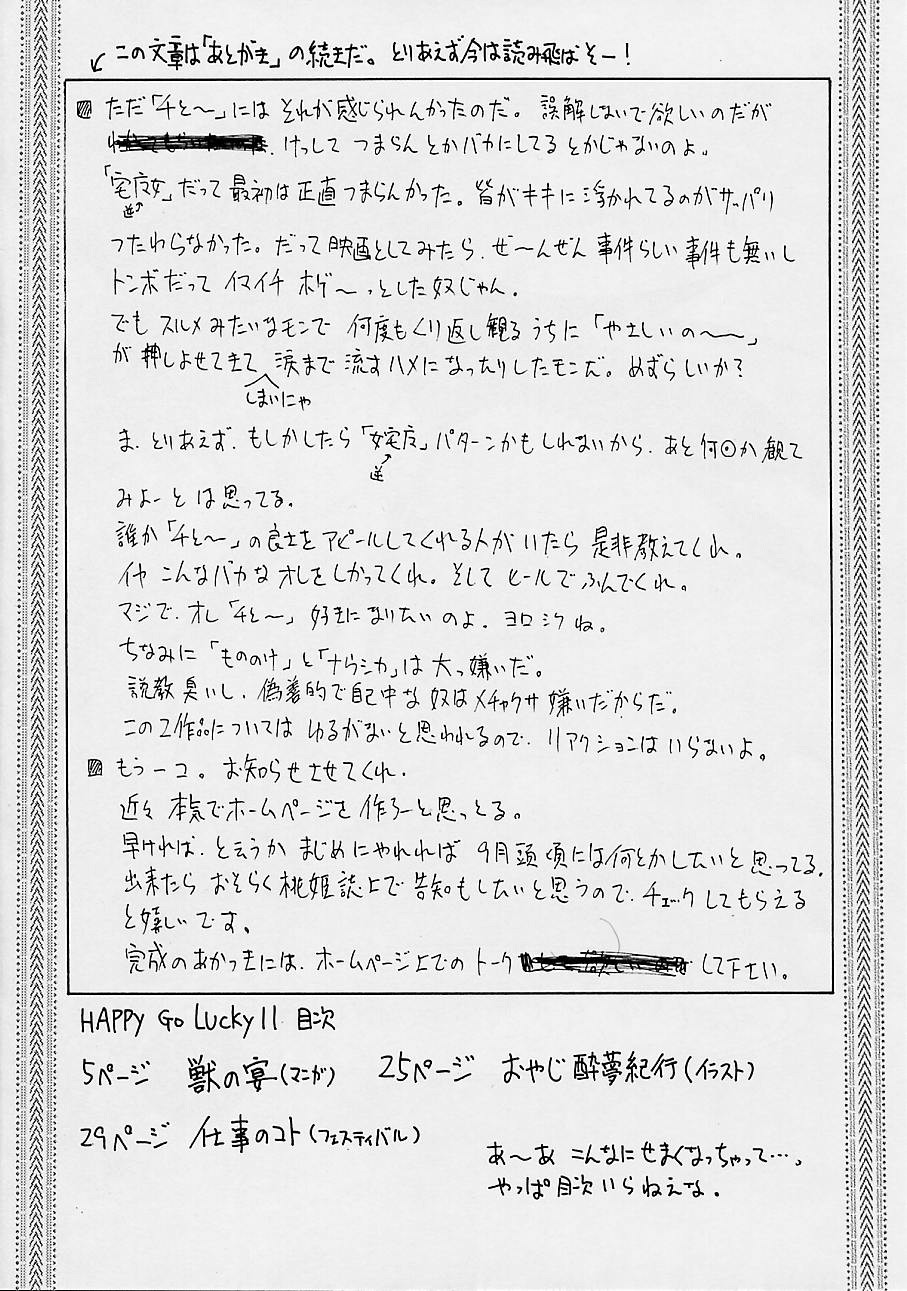 この文章は「あとがき」の続きだ。とりあえず今は読み飛ばそー!
ただ「千と〜」には それが感じられんかったのだ。誤解しないで欲しいのだが
けっして つまらんとかバカにしてるとかじゃないのよ。
「宅急女」だって最初は正直つまらんかった。皆がキキに浮かれてるのがサッパリ
逆
つたわらなかった。だって映画としてみたら、ぜ〜んぜん事件らしい事件も無いし
トンボだって イマイチ ボゲ〜っとした奴じゃん。
でも スルメみたいなモンで 何度もくり返し観るうちに「やさしいの〜〜」
が押しよせてきて 涙まで流すハメになったりしたモンだ。めずらしいか?
しまいにゃ
ま、とりあえず、もしかしたら「女宅急」パターンかもしれないから、あと何回か観て
逆
みよーとは思ってる。
誰か「千と〜」の良さをアピールしてくれる人がいたら是非教えてくれ。
イヤ こんなバカなオレをしかってくれ。そして ヒールでふんでくれ。
マジで、オレ「千と〜」好きになりたいのよ。ヨロシクね。
ちなみに「もののけ」と「ナウシカ」は大っ嫌いだ。
説教臭いし、偽善的で自己中な奴はメチャクサ嫌いだからだ。
この2作品については ゆるがないと思われるので、リアクションはいらないよ。
もう一コ。お知らせさせてくれ。
近々 本気でホームページを作ろーと思っとる。
早ければ、と云うか まじめにやれれば 9月頭頃には何とかしたいと思ってる。
出来たら おそらく桃姫誌上で告知もしたいと思うので、チェックしてもらえる
と嬉しいです。
完成のあかつきには、ホームページ上でのトーク して下さい。
HAPPY Go Lucky11 目次
5ページ 獣の宴(マンガ) 25ページ おやじ酔夢紀行(イラスト)
29ページ 仕事のコト(フェスティバル)
あ〜あ こんなにせまくなっちゃって…、
やっぱ目次いらねえな。